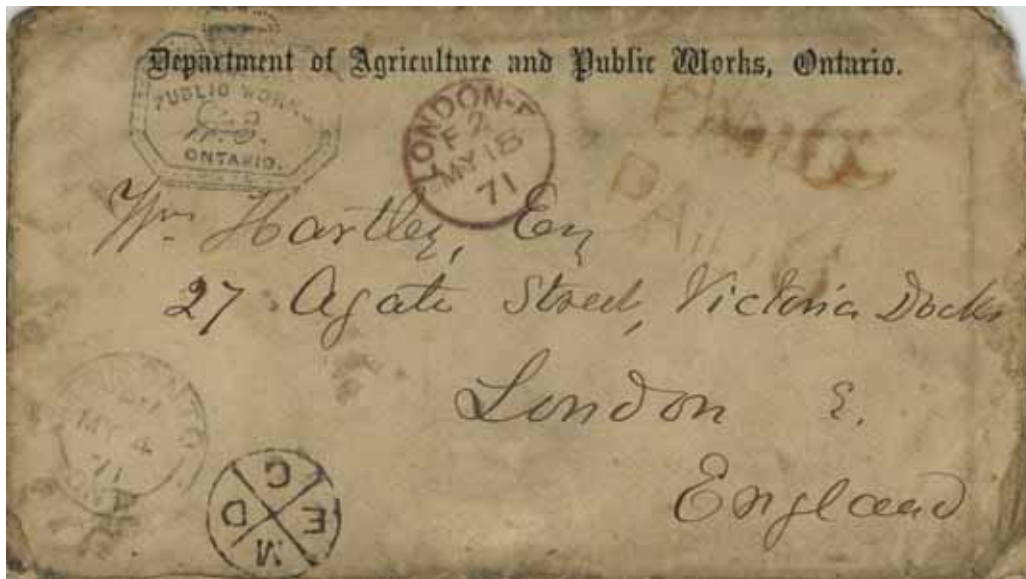 Department of Agriculture and Public Works, Ontario.
PUBLIC WORKS
ONTARIO.
LONDON-E
F 2
MY 18
71
PAID
Wm Hartley, Esq
27 Agate Street, Victoria Docks
London E.
England
MY 4
71
C
D E
M